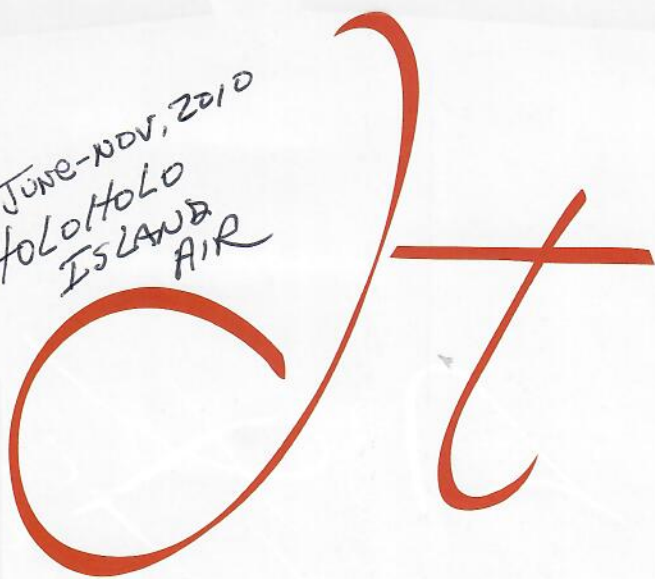 JUNE-NOV, 2010
HOLOHOLO
ISLAND
AIR
It